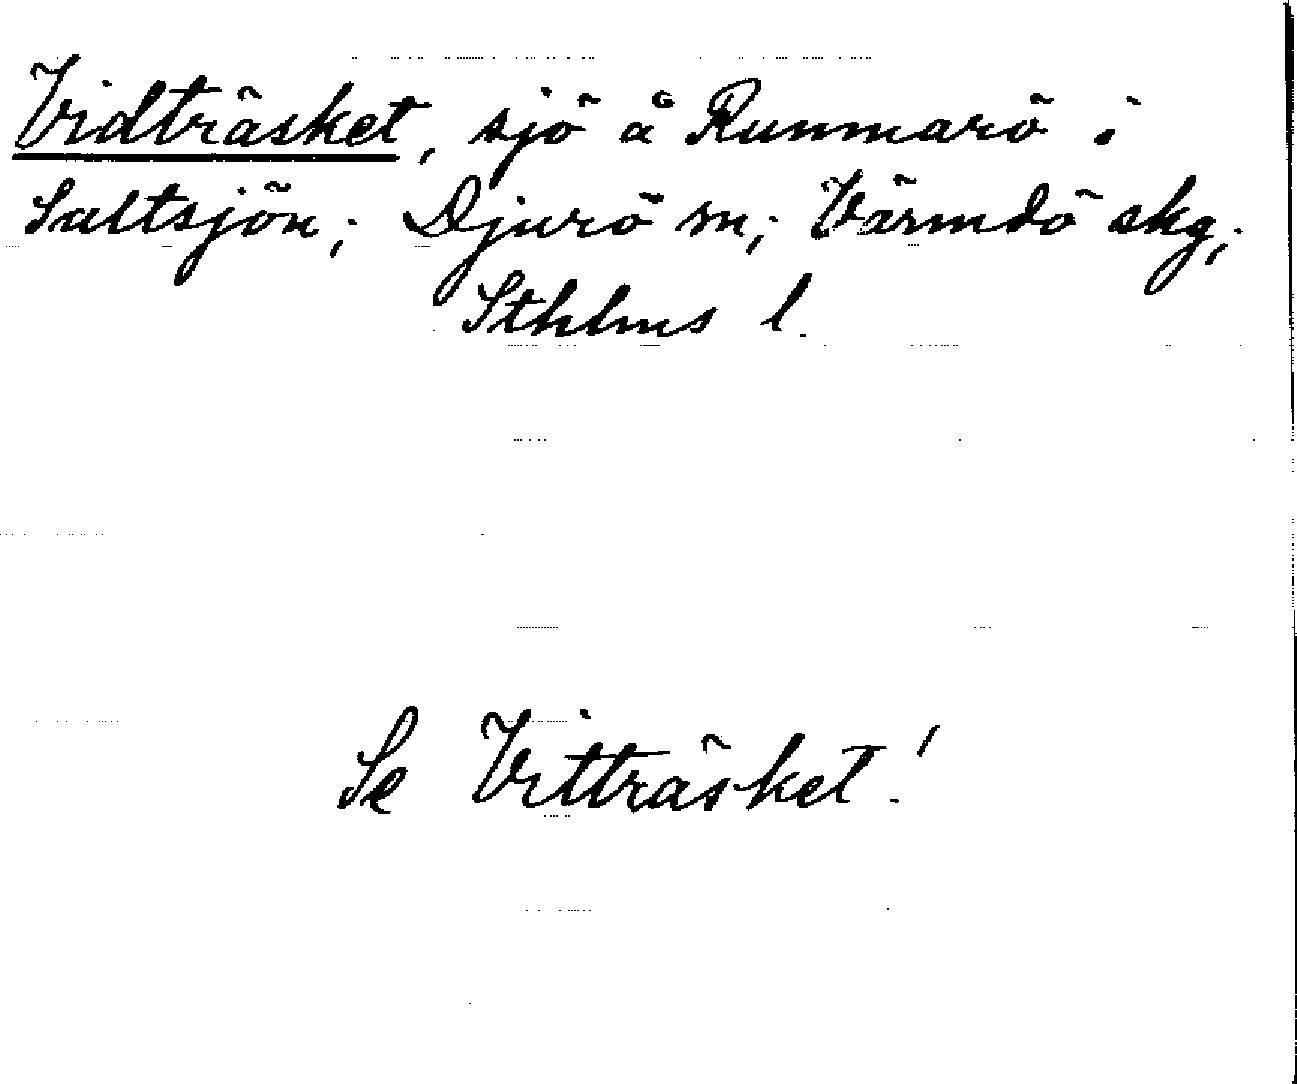 Vidträsket, sjö å Runmarö i
Saltsjön; Djurö sn; Värmdö skg;
Sthlms l.
Se Vitträsket!